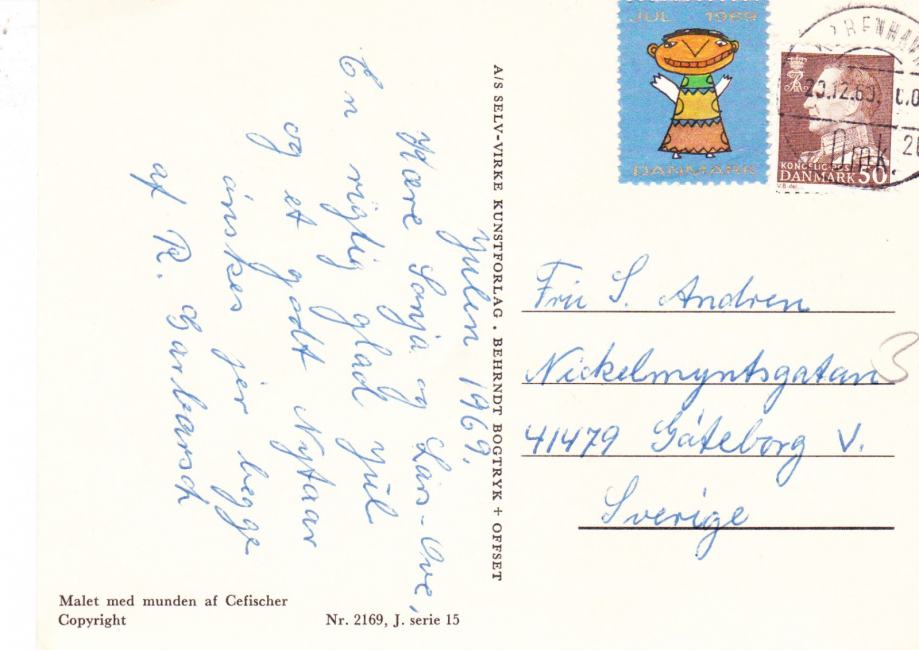 Julen 1969.
Kære Sonja og Lars-Ove,
En rigtig glad Jul
og et godt Nytaar
ønskes jer begge
af R. Garbarsch
A/S SELV-VIRKE KUNSTFORLAG . BEHRNDT BOGTRYK + OFFSET
JUL 1969
DANMARK
KØBENHAVN
Omk.
KONGELIG POST
DANMARK 50
Fru S. Andren
Nickelmyntsgatan 3
41479 Göteborg V.
Sverige
Malet med munden af Cefischer
Copyright
Nr. 2169, J. serie 15